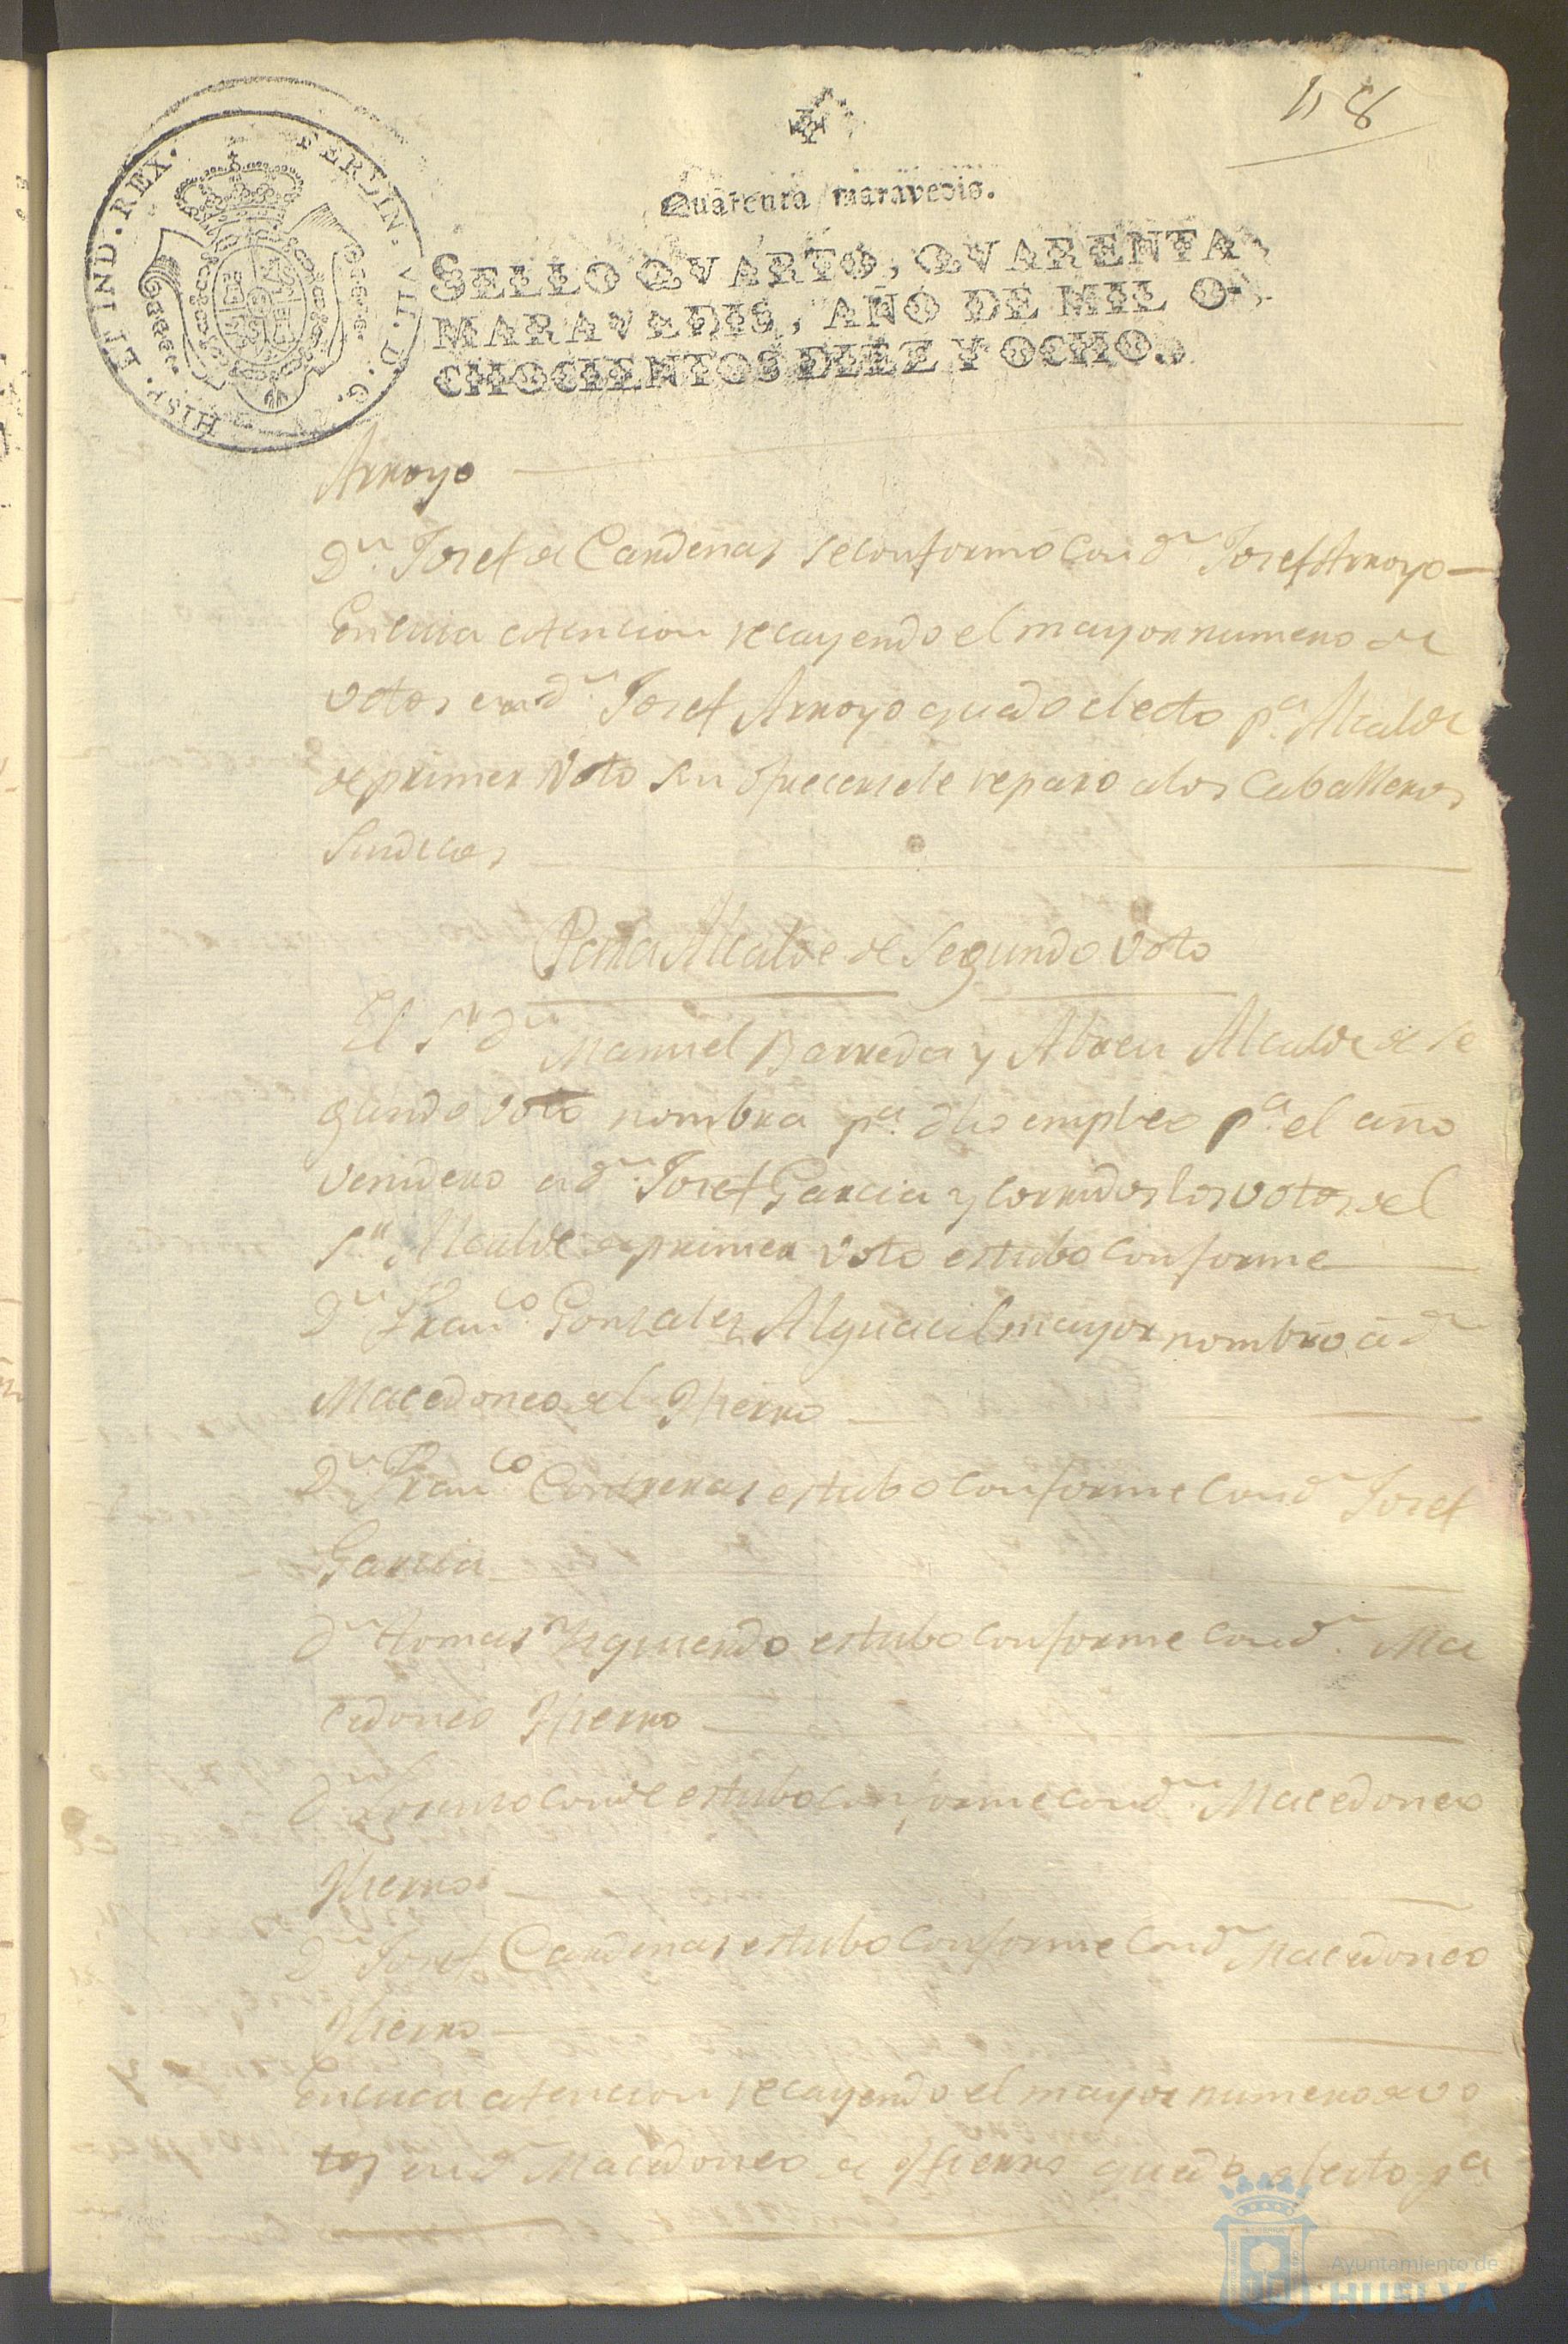 58
Quarenta maravedis.
SELLO QVARTO, QVARENTA
MARAVEDIS, AÑO DE MIL O-
CHOCIENTOS DIEZ Y OCHO.
FERDIN. VII. D. G. HISP. ET IND. REX.
Arroyo
Dn. Josef de Cardenas se conformó con dn Josef Arroyo
En cuia atencion recayendo el mayor numero de
votos en dn. Josef Arroyo quedo electo pa. Alcalde
de primer Voto sin ofrecersele reparo a los Caballeros
Sindicos
Para Alcalde de Segundo Voto
El Sr dn Manuel Barreda y Abreu Alcalde de Se
gundo voto nombra pa. dho empleo pa. el año
venidero a dn. Josef Garcia y corridos los votos el
Sr. Alcalde de primer voto estubo conforme
Dn Franco. Gonzalez Alguacil mayor nombró á dn
Macedoneo del Hierro
Dn. Franco Contreras estubo conforme con dn Josef
Garcia
dn tomas Yzquierdo estubo conforme con dn. Ma
cedoneo Hierro
dn Lorenzo Conde estubo conforme con dn. Macedoneo
Hierro
Dn Josef Cardenas estubo conforme con dn Macedoneo
Hierro
En cuia atencion recayendo el mayor numero de vo
tos en dn Macedoneo de Hierro quedo electo pa
Ayuntamiento de
HUELVA